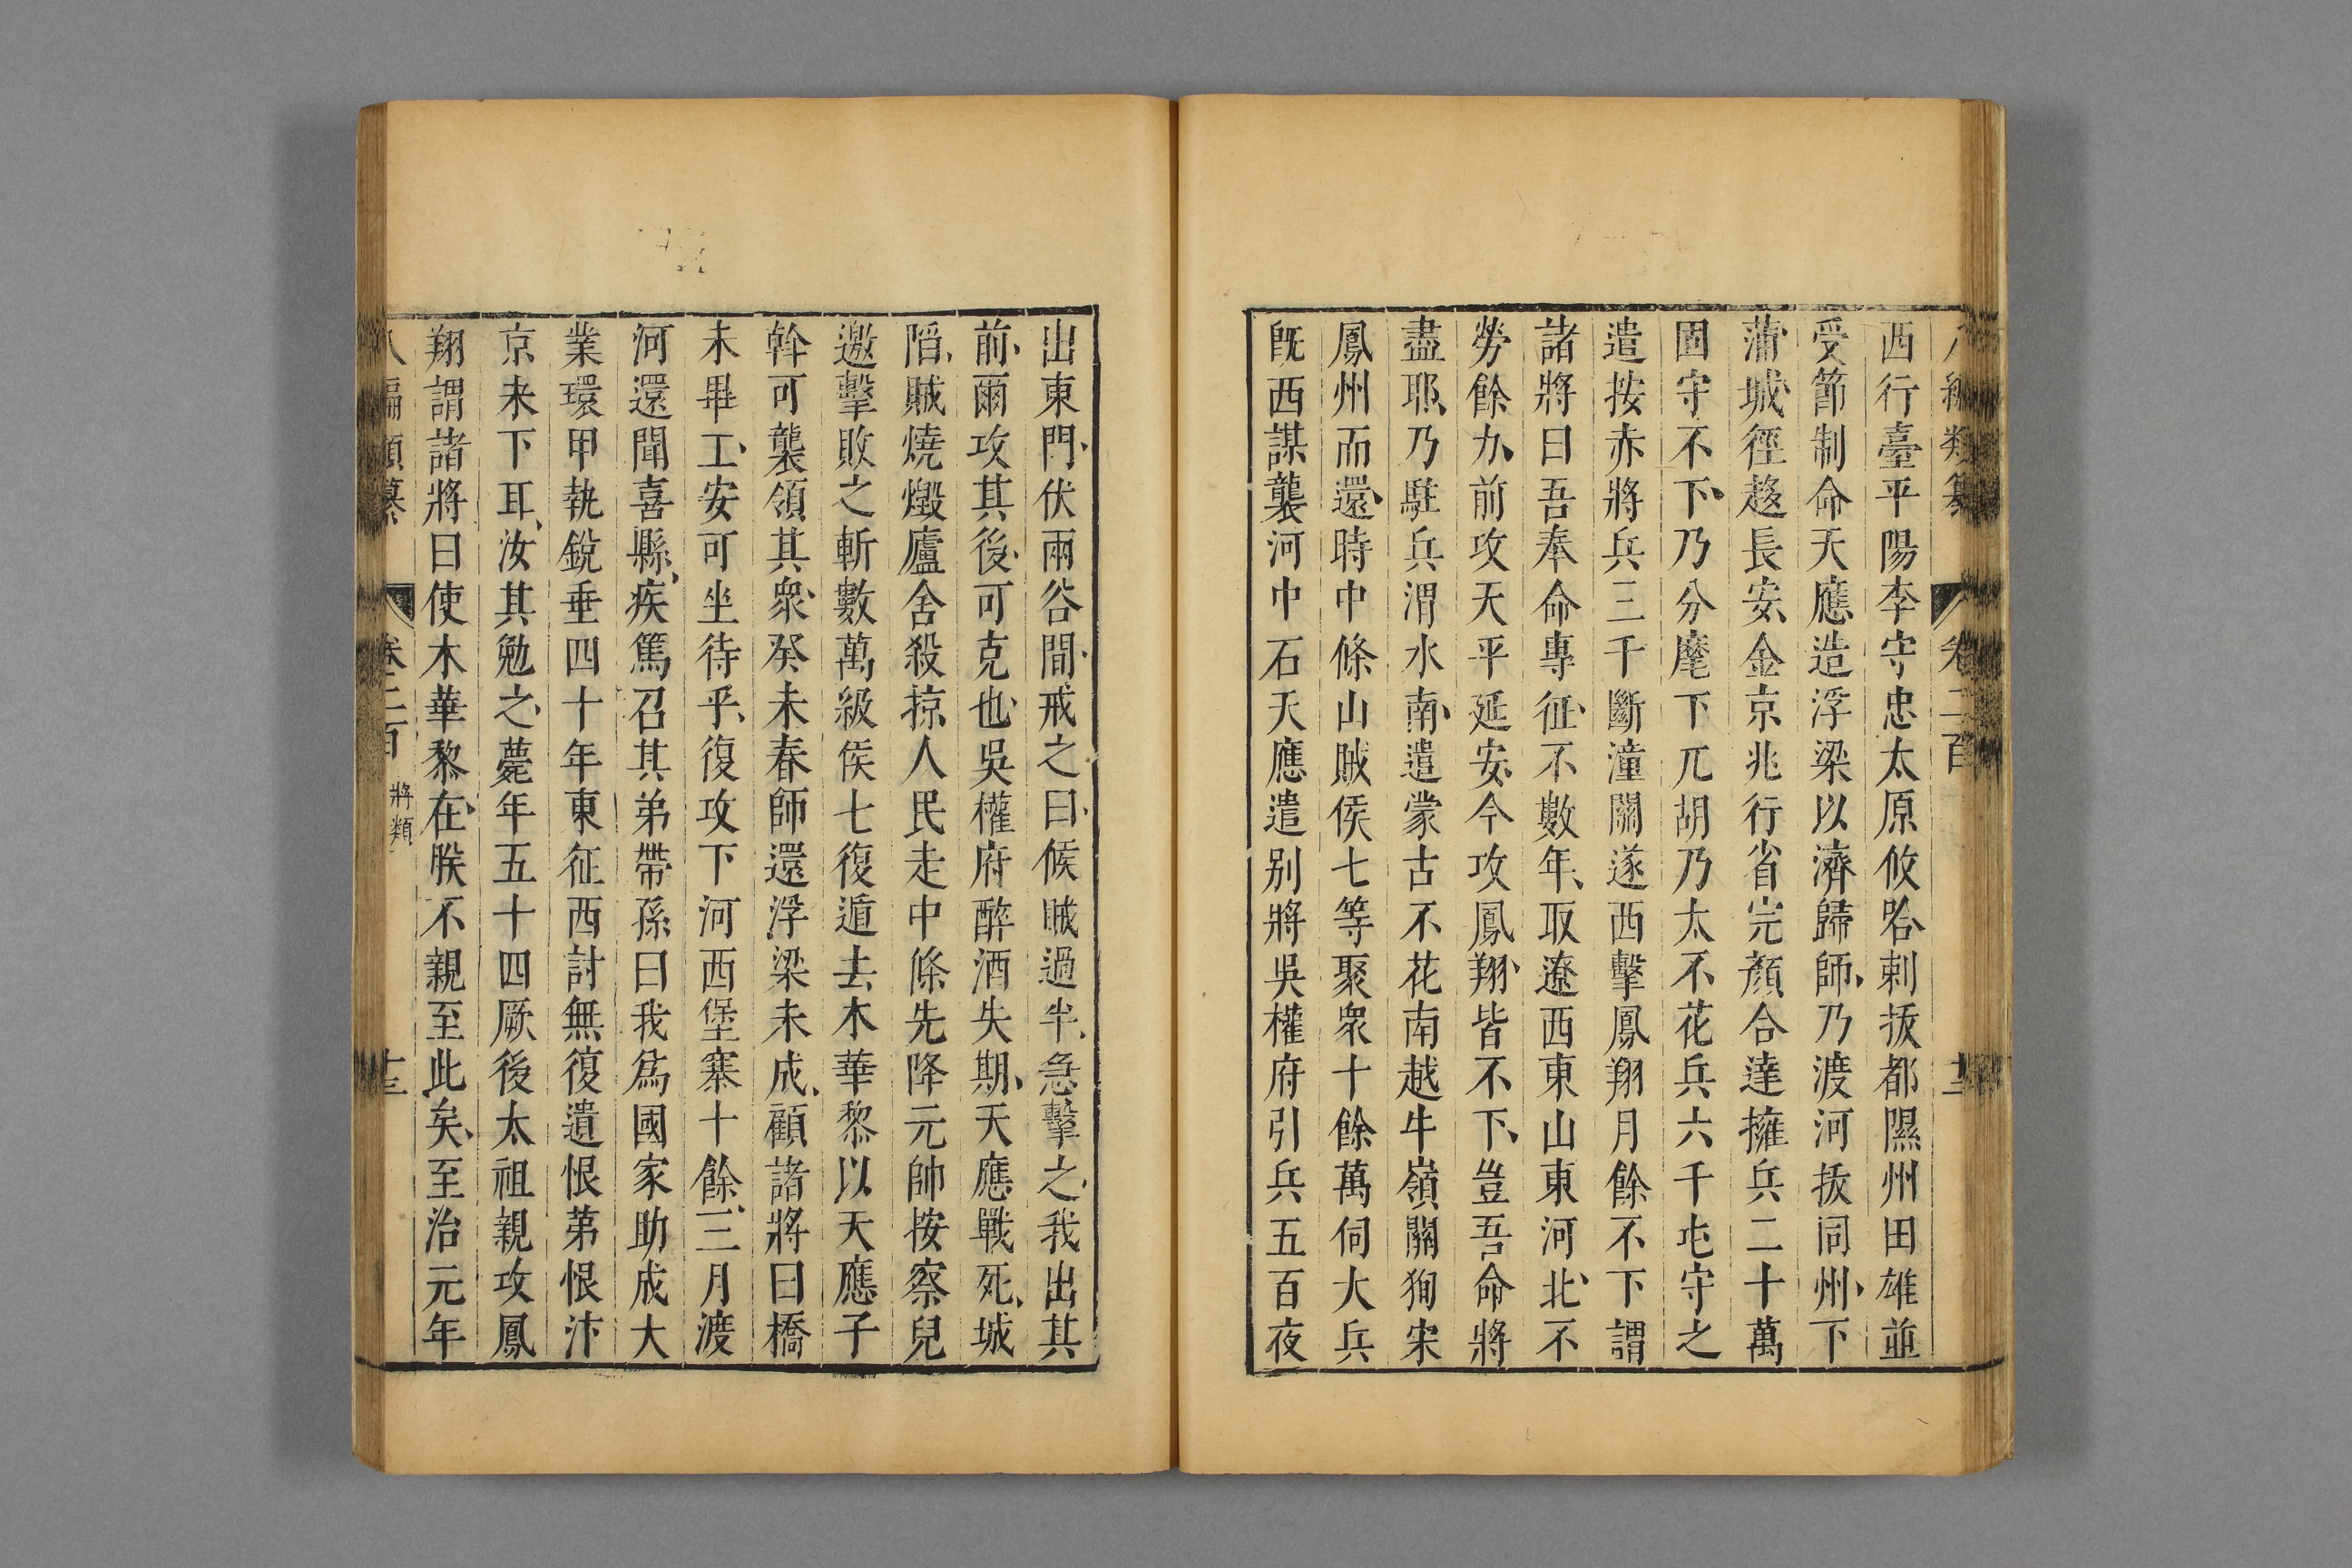 八編類纂 卷二百 十二
西行臺平陽李守忠太原攸哈剌拔都隰州田雄並
受節制命天應造浮梁以濟歸師乃渡河拔同州下
蒲城徑趍長安金京兆行省完顏合達擁兵二十萬
固守不下乃分麾下兀胡乃太不花兵六千屯守之
遣按赤將兵三千斷潼關遂西擊鳳翔月餘不下謂
諸將曰吾奉命專征不數年取遼西東山東河北不
勞餘力前攻天平延安今攻鳳翔皆不下豈吾命將
盡耶乃駐兵渭水南遣蒙古不花南越牛嶺關狥宋
鳳州而還時中條山賊侯七等聚衆十餘萬伺大兵
旣西謀襲河中石天應遣別將吳權府引兵五百夜
出東門伏兩谷間戒之曰候賊過半急擊之我出其
前爾攻其後可克也吳權府醉酒失期天應戰死城
陷賊燒燬廬舍殺掠人民走中條先降元帥按察兒
邀擊敗之斬數萬級侯七復遁去木華黎以天應子
斡可襲領其衆癸未春師還浮梁未成顧諸將曰橋
未畢工安可坐待乎復攻下河西堡寨十餘三月渡
河還聞喜縣疾篤召其弟帶孫曰我爲國家助成大
業環甲執銳垂四十年東征西討無復遺恨第恨汴
京未下耳汝其勉之薨年五十四厥後太祖親攻鳳
翔謂諸將曰使木華黎在朕不親至此矣至治元年
八編類纂 卷二百 將類 十三